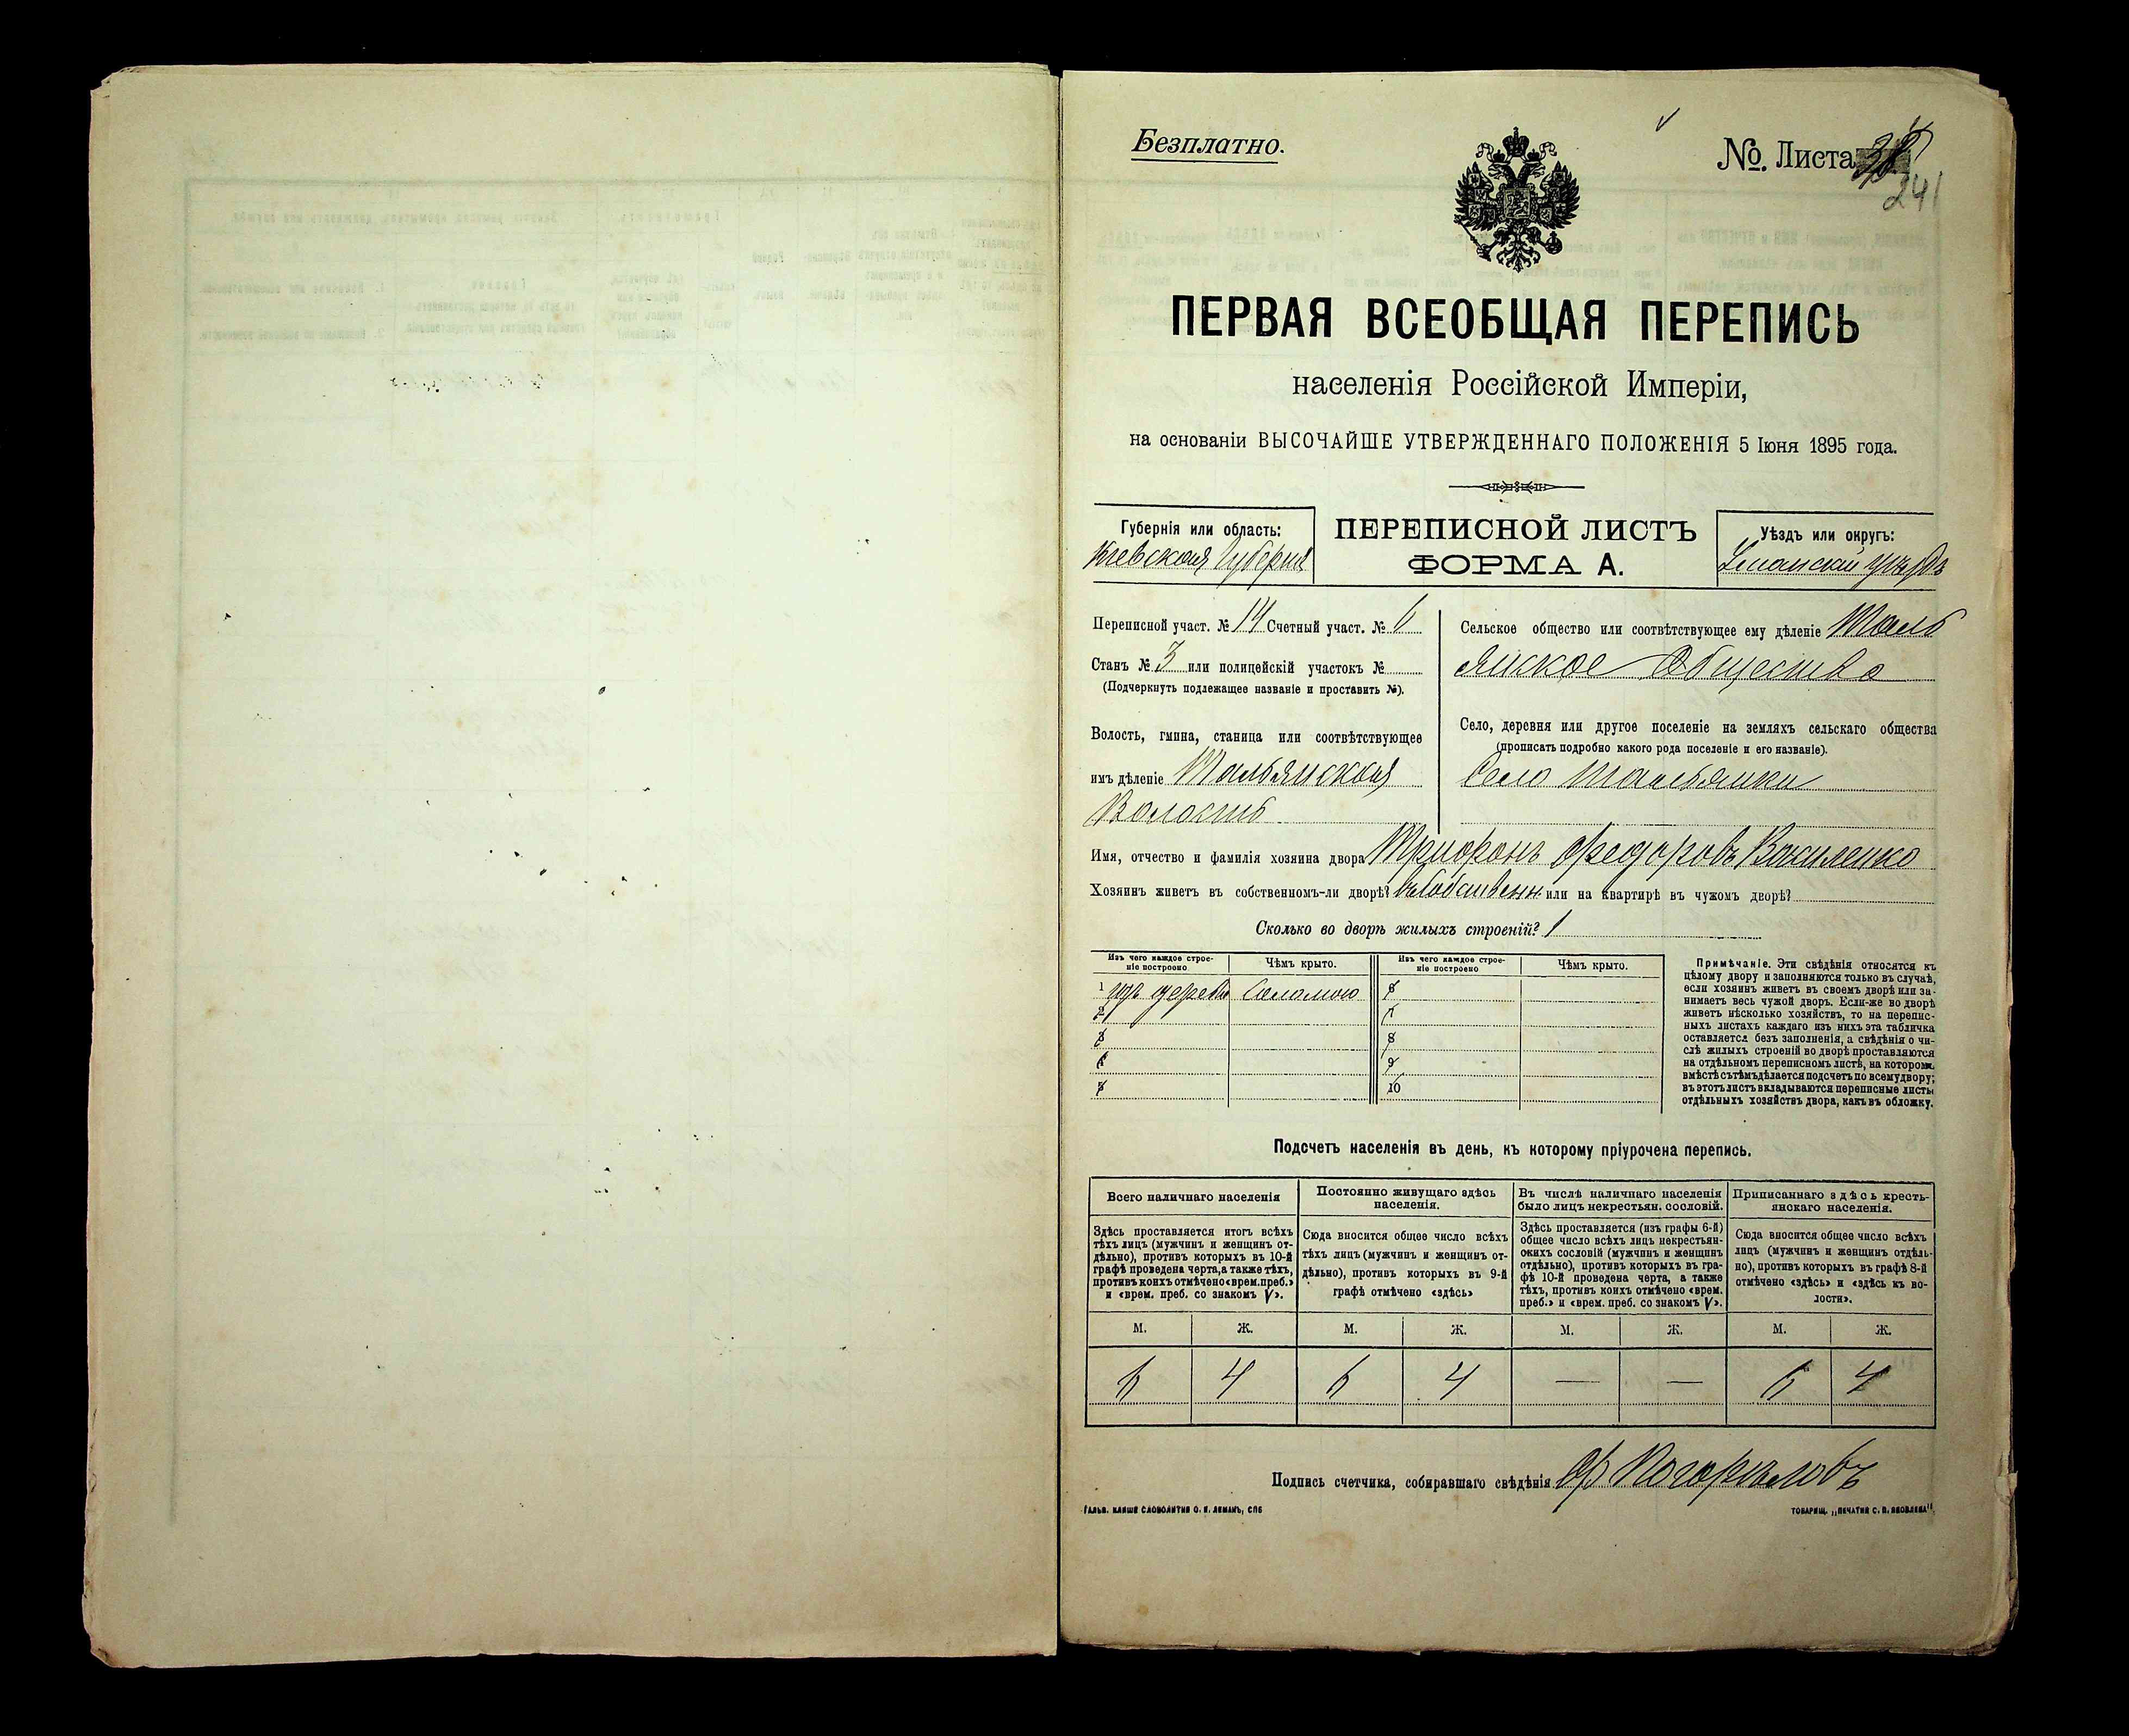 Безплатно.
№. Листа
241
ПЕРВАЯ ВСЕОБЩАЯ ПЕРЕПИСЬ
населенія Россійской Имперіи,
на основаніи ВЫСОЧАЙШЕ УТВЕРЖДЕННАГО ПОЛОЖЕНІЯ 5 Іюня 1895 года.
Губернія или область:
Кіевская Губернія
ПЕРЕПИСНОЙ ЛИСТЪ
ФОРМА А.
Уѣздъ или округъ:
Уманскій уѣздъ
Переписной участ. № 14 Счетный участ. № 6
Станъ № 3 или полицейскій участокъ №
(Подчеркнуть подлежащее названіе и проставить №).
Волость, гмина, станица или соотвѣтствующее
имъ дѣленіе Тальянская
Волость
Сельское общество или соотвѣтствующее ему дѣленіе Таль
янское Общество
Село, деревня или другое поселеніе на земляхъ сельскаго общества
(прописать подробно какого рода поселеніе и его названіе).
Село Тальянки
Имя, отчество и фамилія хозяина двора Трифонъ Федоровъ Василенко
Хозяинъ живетъ въ собственномъ-ли дворѣ? въ Собственн. или на квартирѣ въ чужомъ дворѣ?
Сколько во дворѣ жилыхъ строеній? 1
Изъ чего каждое строе-
ніе построено
Чѣмъ крыто.
Изъ чего каждое строе-
ніе построено
Чѣмъ крыто.
1 изъ дерева Соломою 6
2 7
3 8
4 9
5 10
Примѣчаніе. Эти свѣдѣнія относятся къ
цѣлому двору и заполняются только въ случаѣ,
если хозяинъ живетъ въ своемъ дворѣ или за-
нимаетъ весь чужой дворъ. Если-же во дворѣ
живетъ нѣсколько хозяйствъ, то на перепис-
ныхъ листахъ каждаго изъ нихъ эта табличка
оставляется безъ заполненія, а свѣдѣнія о чи-
слѣ жилыхъ строеній во дворѣ проставляются
на отдѣльномъ переписномъ листѣ, на которомъ
вмѣстѣ съ тѣмъ дѣлается подсчетъ по всему двору;
въ этотъ листъ вкладываются переписные листы
отдѣльныхъ хозяйствъ двора, какъ въ обложку.
Подсчетъ населенія въ день, къ которому пріурочена перепись.
Всего наличнаго населенія
Здѣсь проставляется итогъ всѣхъ
тѣхъ лицъ (мужчинъ и женщинъ от-
дѣльно), противъ которыхъ въ 10-й
графѣ проведена черта, а также тѣхъ,
противъ коихъ отмѣчено «врем. преб.»
и «врем. преб. со знакомъ V».
Постоянно живущаго здѣсь
населенія.
Сюда вносится общее число всѣхъ
тѣхъ лицъ (мужчинъ и женщинъ от-
дѣльно), противъ которыхъ въ 9-й
графѣ отмѣчено «здѣсь»
Въ числѣ наличнаго населенія
было лицъ некрестьян. сословій.
Здѣсь проставляется (изъ графы 6-й)
общее число всѣхъ лицъ некрестьян-
скихъ сословій (мужчинъ и женщинъ
отдѣльно), противъ которыхъ въ гра-
фѣ 10-й проведена черта, а также
тѣхъ, противъ коихъ отмѣчено «врем.
преб.» и «врем. преб. со знакомъ V».
Приписаннаго здѣсь кресть-
янскаго населенія.
Сюда вносится общее число всѣхъ
лицъ (мужчинъ и женщинъ отдѣль-
но), противъ которыхъ въ графѣ 8-й
отмѣчено «здѣсь» и «здѣсь къ во-
лости».
М. Ж. М. Ж. М. Ж. М. Ж.
6 4 6 4 — — 6 4
Подпись счетчика, собиравшаго свѣдѣнія Ф Погорѣловъ
ГАЛЬВ. КЛИШЕ СЛОВОЛИТНИ О. И. ЛЕМАНЪ, СПБ
ТОВАРИЩ. „ПЕЧАТНЯ С. П. ЯКОВЛЕВА".